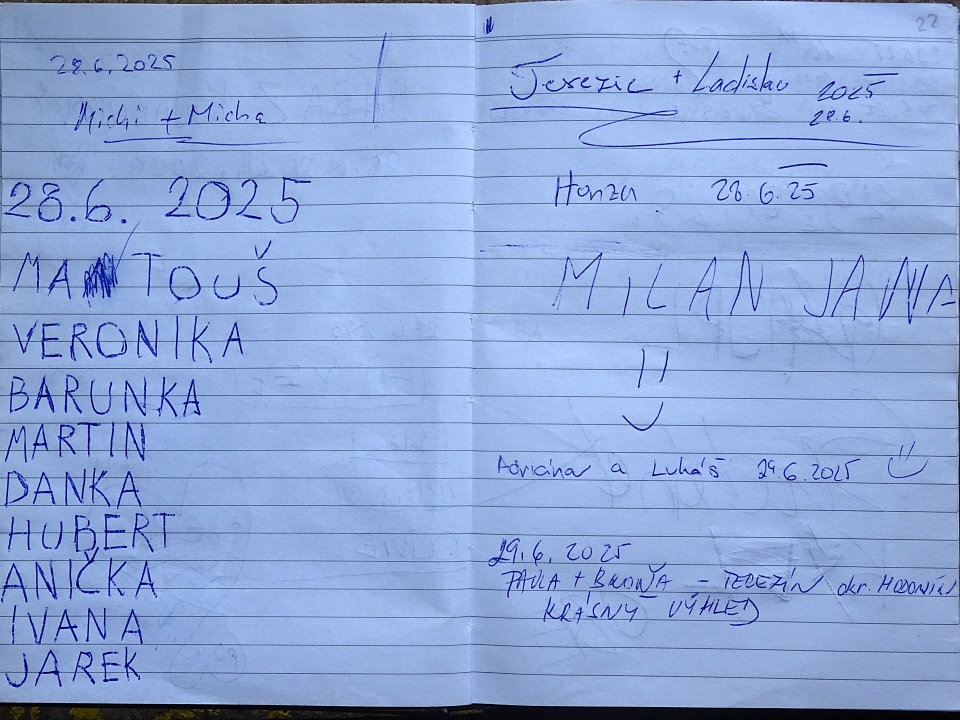 28.6.2025
Michi + Micha
28.6. 2025
MATOUŠ
VERONIKA
BARUNKA
MARTIN
DANKA
HUBERT
ANIČKA
IVANA
JAREK
22
Terezie + Ladislav 2025
28.6.
Honza 28.6.25
MILAN JANA
Adriana a Lukáš 29.6.2025
29.6. 2025
PAVLA + BROŇA - TEREZÍN okr. HODONÍN
KRÁSNÝ VÝHLED